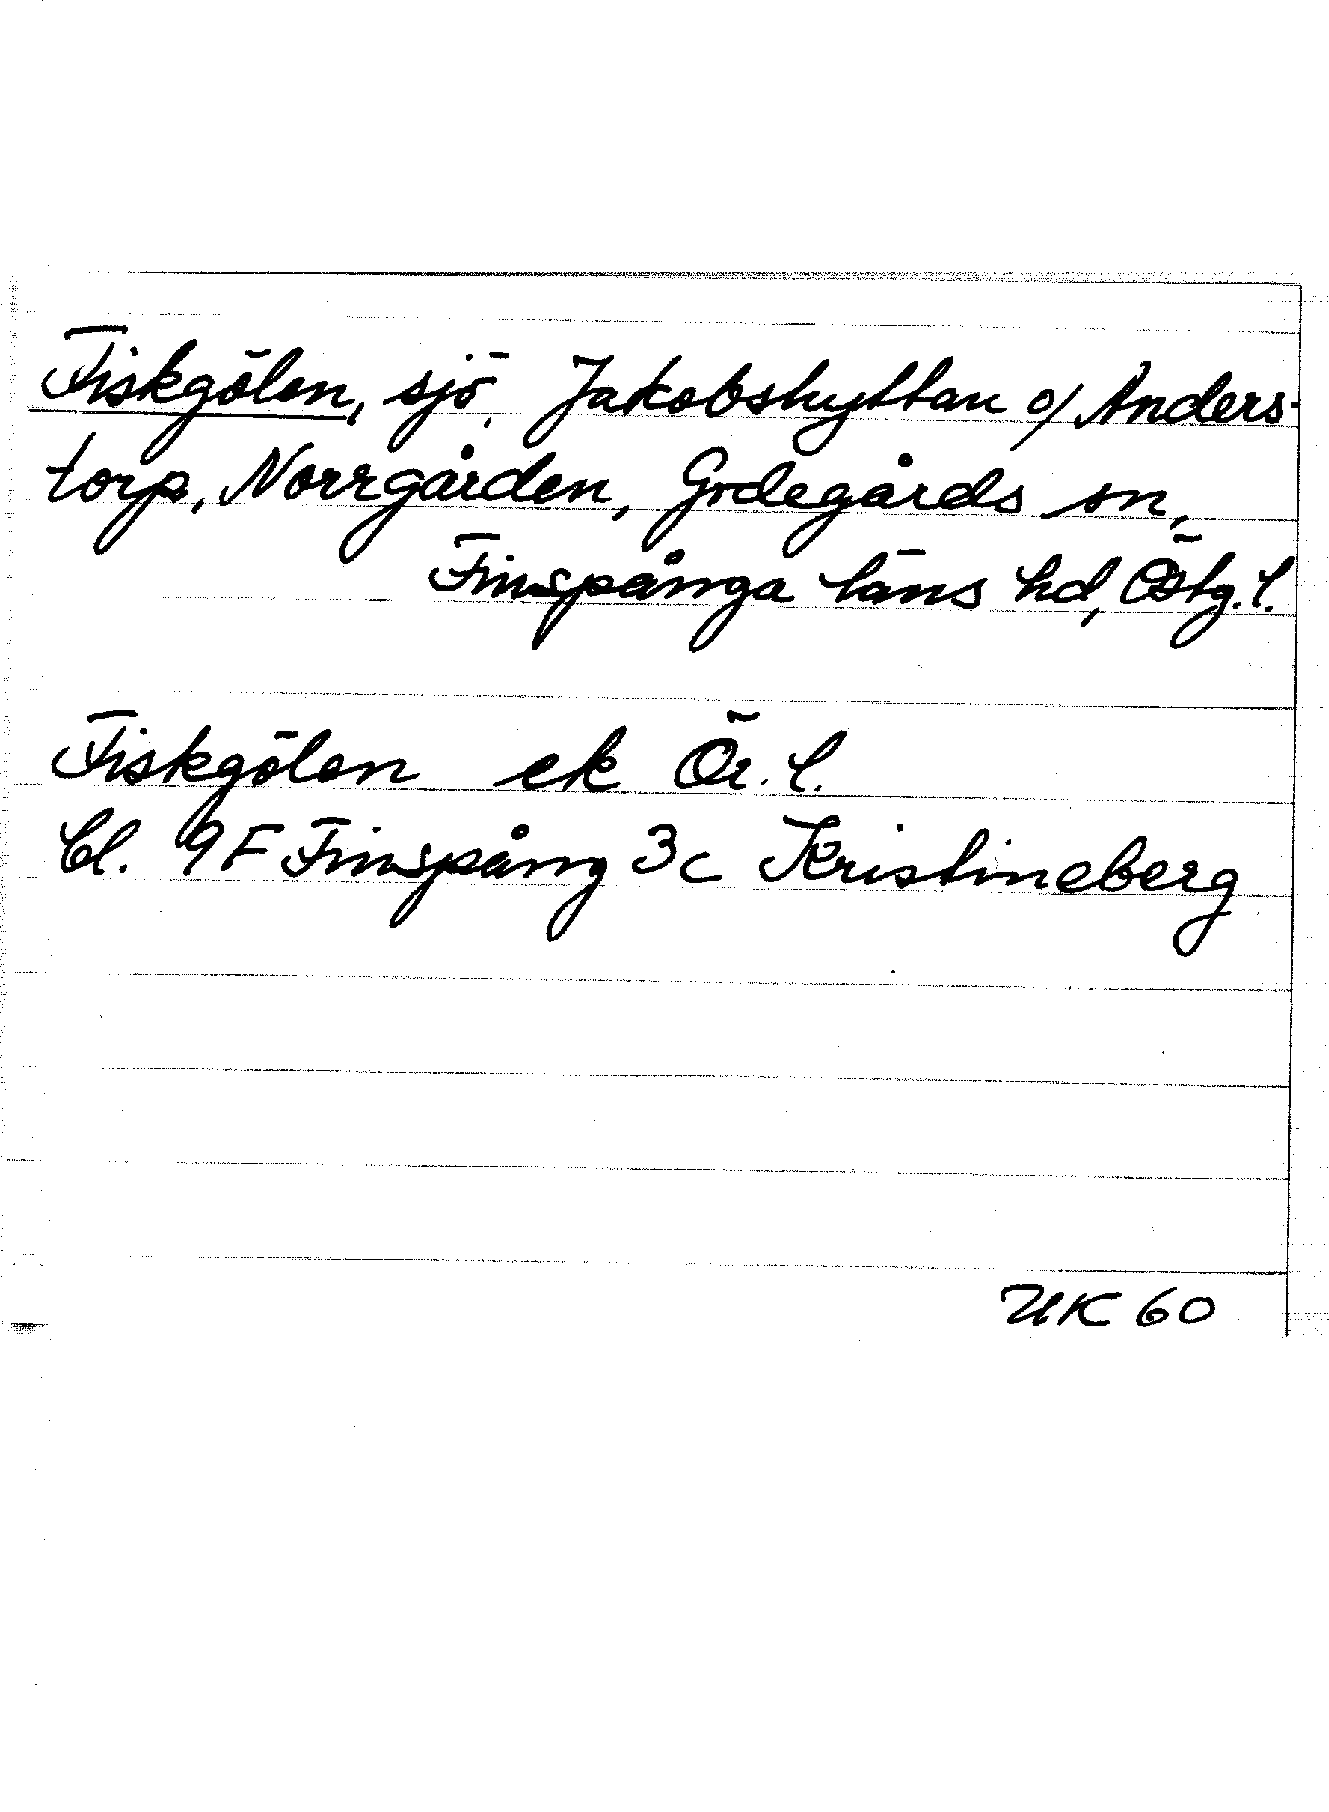 Fiskgölen, sjö, Jakobshyttan o/ Anders-
torp, Norrgården, Godegårds sn,
Finspånga läns hd, Östg. l.
Fiskgölen ek Ör. l.
bl. 9F Finspång 3c Kristineberg
UK 60